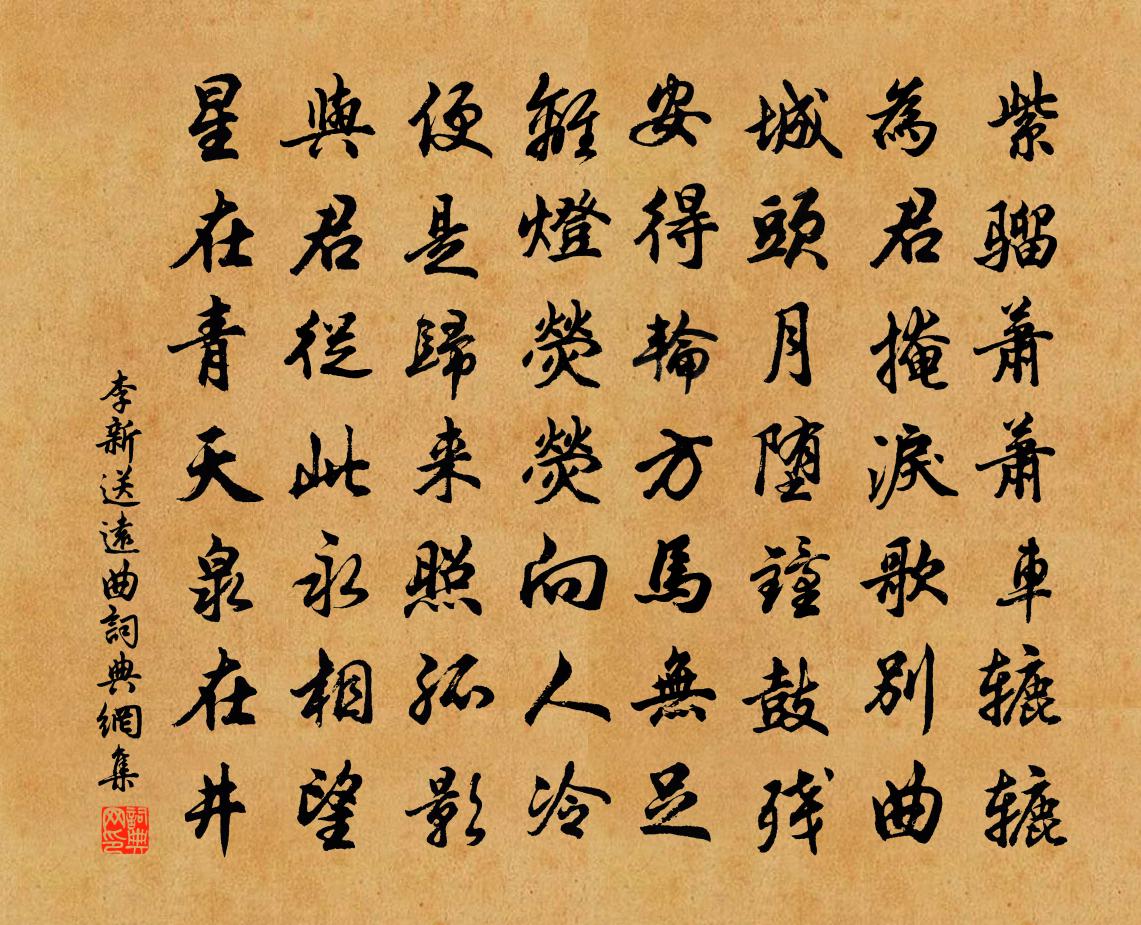 紫骝萧萧車辘辘
為君掩淚歌別曲
城頭月堕鐘鼓残
安得輪方馬無足
離燈熒熒向人冷
便是歸来照孤影
與君從此永相望
星在青天泉在井
李新送遠曲詞典網集
詞典网印